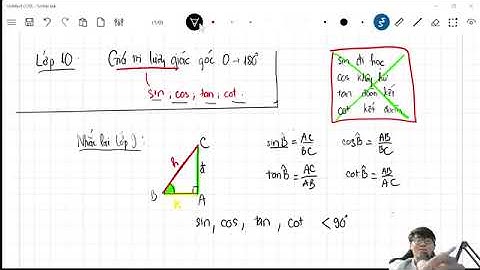 Lớp 10: Giá trị lượng giác góc 0 → 180°
sin, cos, tan, cot.
sin đi học
cos không hư
tan đoàn kết
cot kết đoàn
Nhắc lại Lớp 9:
C
h
B
A
sin B̂ = AC/BC cos B̂ = AB/BC
tan B̂ = AC/AB cot B̂ = AB/AC
sin, cos, tan, cot < 90°